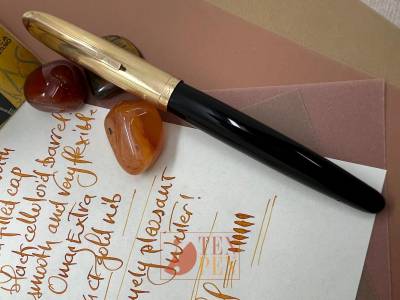 cap
Black celluloid barrel
smooth and very flexible
Omas Extra
ct gold nib
pleasant
writer!
TEN
PEN